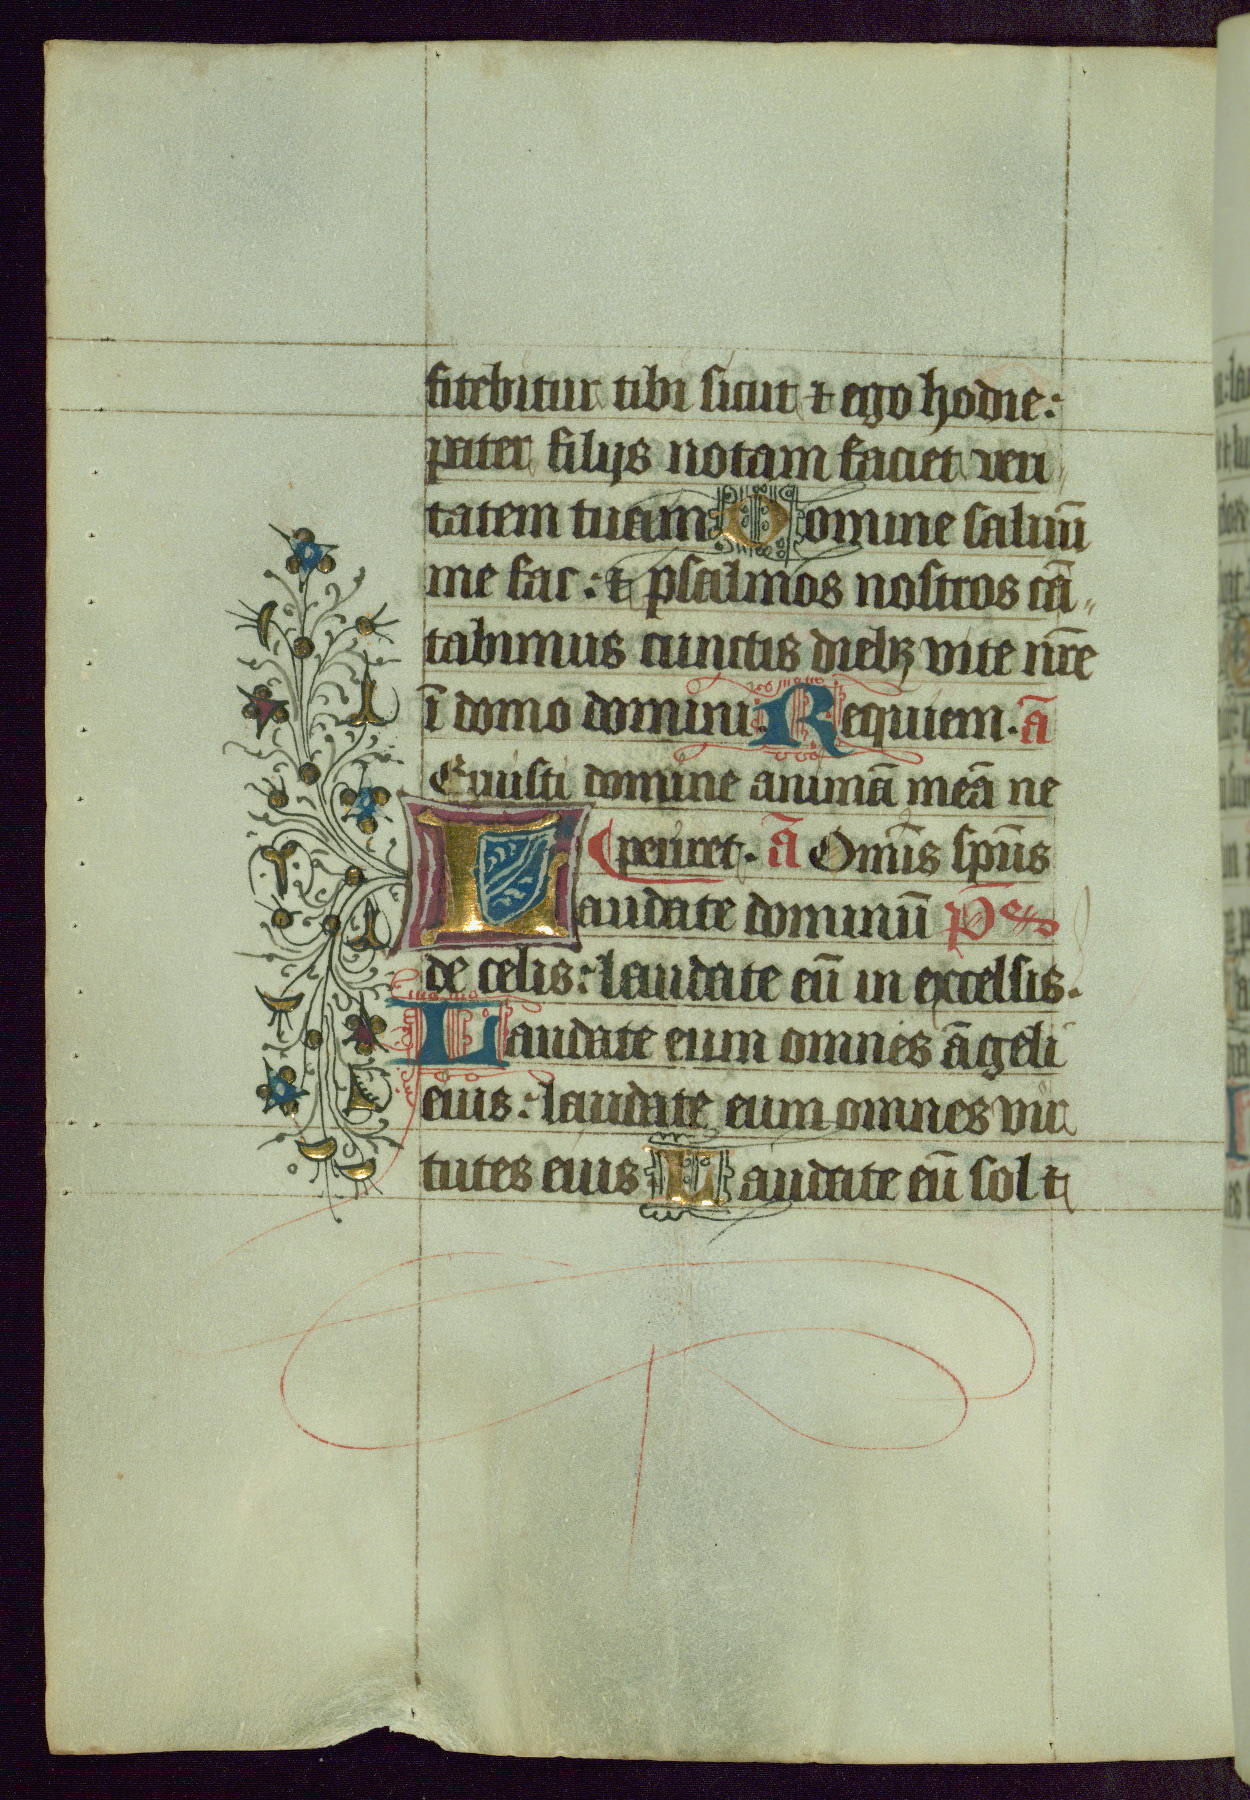 fitebitur tibi sicut ⁊ ego hodie:
pater filijs notam faciet veri
tatem tuam Domine saluū
me fac: ⁊ psalmos nostros cā
tabimus cunctis diebꝫ vite nr̄e
ī domo domini. Requiem. ā
Eruisti domine animā meā ne
periret. ā Omīs sp̄us
Laudate dominū ps
de celis: laudate eū in excelsis.
Laudate eum omnes āgeli
eius: laudate eum omnes vir
tutes eius Laudate eū sol ⁊